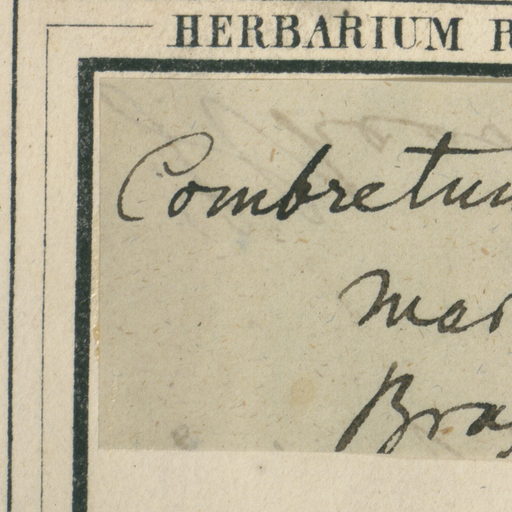 HERBARIUM R
Combretum
Mar
Bras